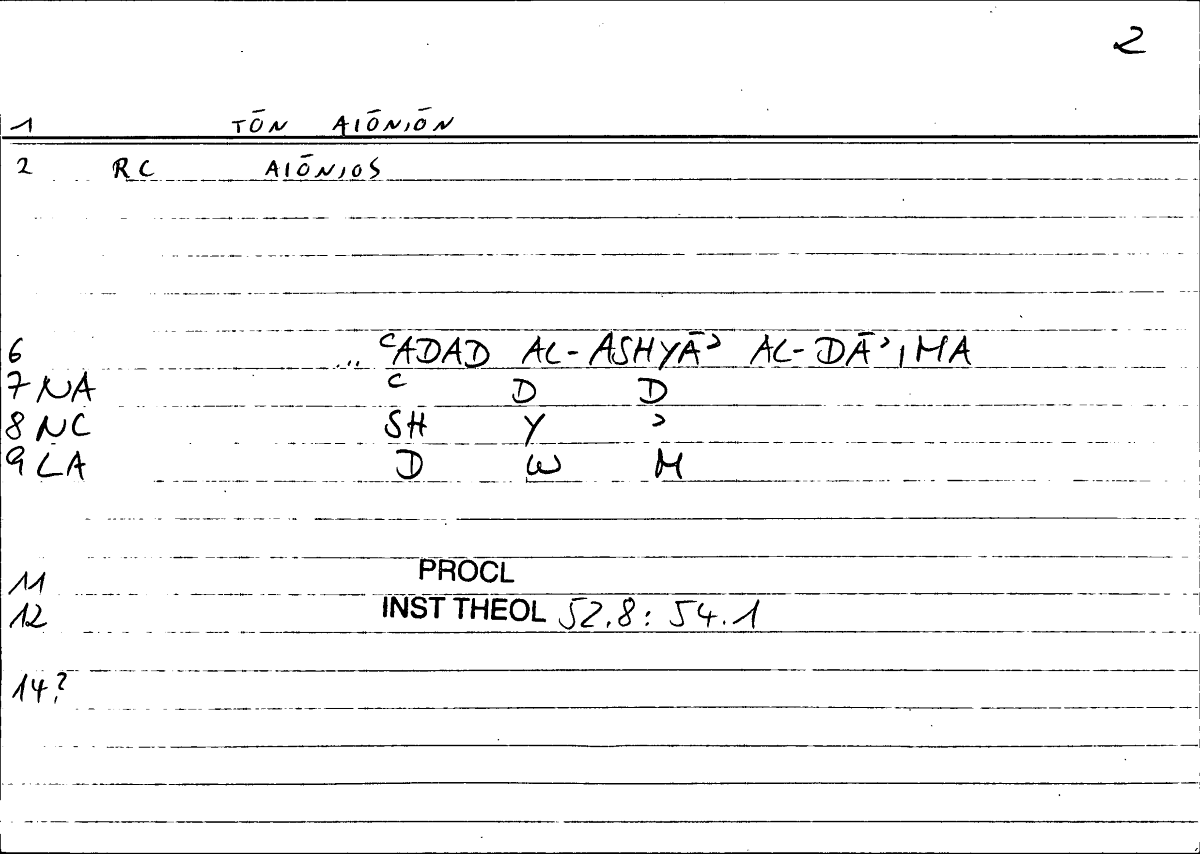 2
1 TŌN AIŌNIŌN
2 RC AIŌNIOS
6 ... ʿADAD AL-ASHYĀʾ AL-DĀʾIMA
7 NA ʿ D D
8 NC SH Y ʾ
9 LA D W M
11 PROCL
12 INST THEOL 52.8: 54.1
14?